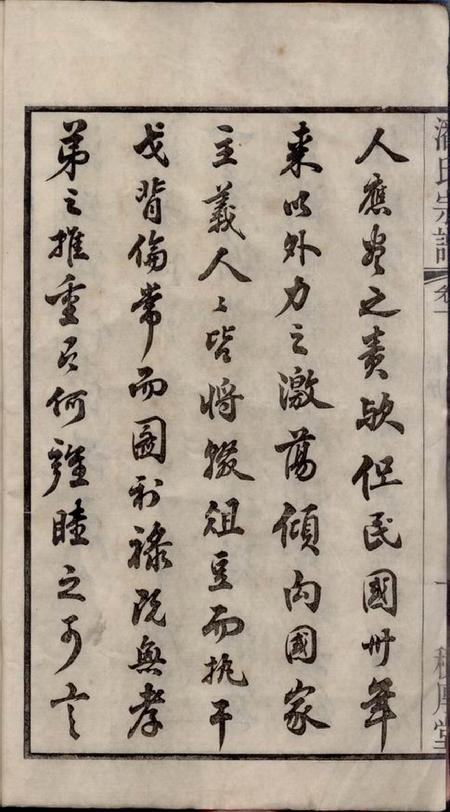 潘氏宗譜
卷一
一
人應盡之責歟但民國卅年
來以外力之激蕩傾向國家
主義人〻皆將輟俎豆而执干
戈背倫常而圖利祿既無孝
弟之推重又何雍睦之可言